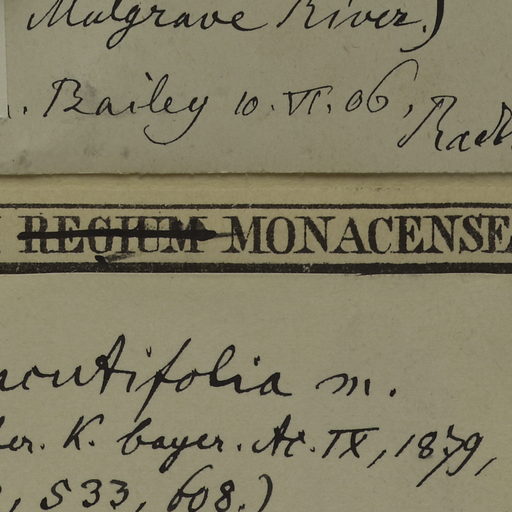 Mulgrave River.)
. Bailey 10. VI. 06,
REGIUM MONACENSE
acutifolia m.
K. bayer. Ac. IX, 1879,
, 533, 608.)